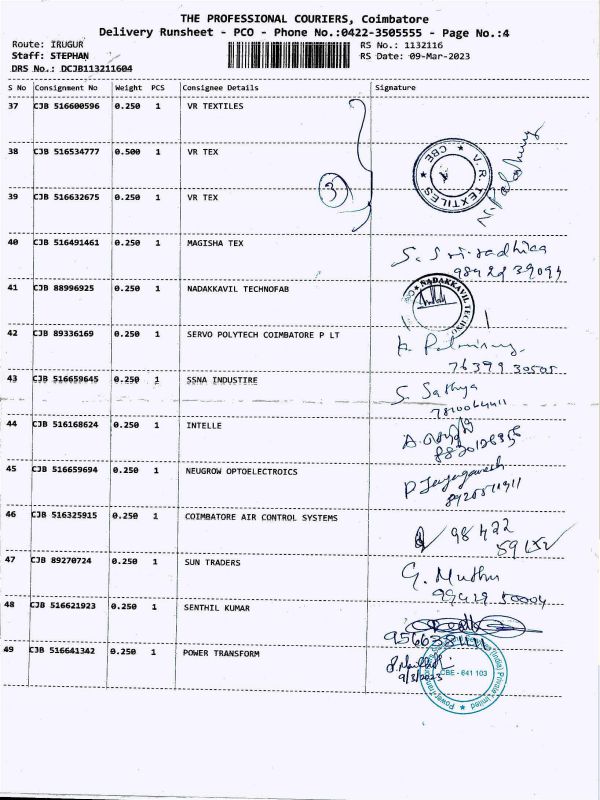 THE PROFESSIONAL COURIERS, Coimbatore
Delivery Runsheet - PCO - Phone No.:0422-3505555 - Page No.:4
Route: IRUGUR
RS No.: 1132116
Staff: STEPHAN
RS Date: 09-Mar-2023
DRS No.: DCJB113211604
S No Consignment No Weight PCS Consignee Details Signature
37 CJB 516600596 0.250 1 VR TEXTILES
38 CJB 516534777 0.500 1 VR TEX
V. R. TEXTILES ★ CBE ★
3
39 CJB 516632675 0.250 1 VR TEX
40 CJB 516491461 0.250 1 MAGISHA TEX
S. Sri radhica
98424 39094
41 CJB 88996925 0.250 1 NADAKKAVIL TECHNOFAB
NADAKKAVIL TECHNO
42 CJB 89336169 0.250 1 SERVO POLYTECH COIMBATORE P LT
76399 30505
43 CJB 516659645 0.250 1 SSNA INDUSTIRE
S. Sathya
44 CJB 516168624 0.250 1 INTELLE
45 CJB 516659694 0.250 1 NEUGROW OPTOELECTROICS
46 CJB 516325915 0.250 1 COIMBATORE AIR CONTROL SYSTEMS
98422
47 CJB 89270724 0.250 1 SUN TRADERS
G. Muthu
48 CJB 516621923 0.250 1 SENTHIL KUMAR
49 CJB 516641342 0.250 1 POWER TRANSFORM
9/3/2023
CBE - 641 103
(India) Private Limited